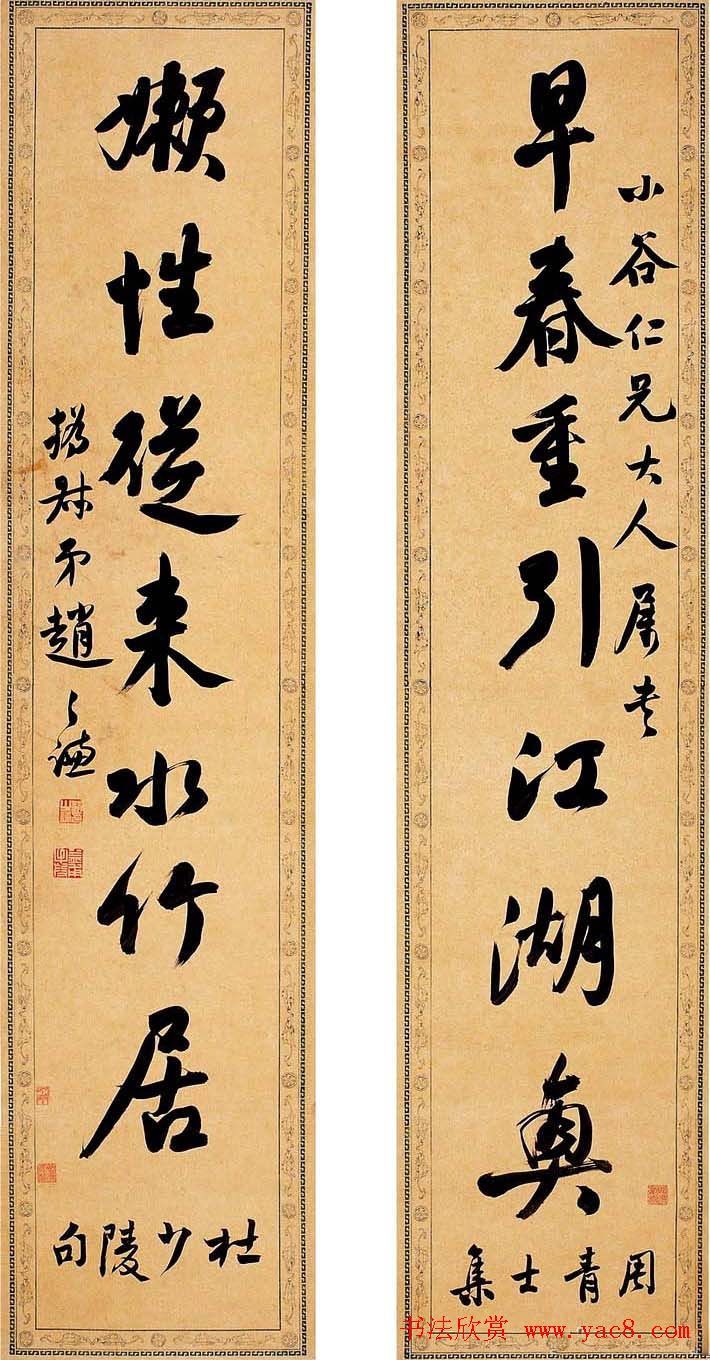 早春重引江湖興
小谷仁兄大人屬書
周青士集
嬾性從来水竹居
杜少陵句
撝叔弟趙之謙
书法欣赏 www.yac8.com